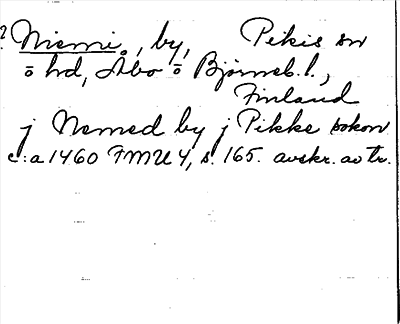 ? Niemi, by, Pikis sn
ö hd, Åbo ö Bjørneb. l.,
Finland
j Nemed by j Pikke sokon
c:a 1460 FMU 4, s. 165. avskr. av tr.